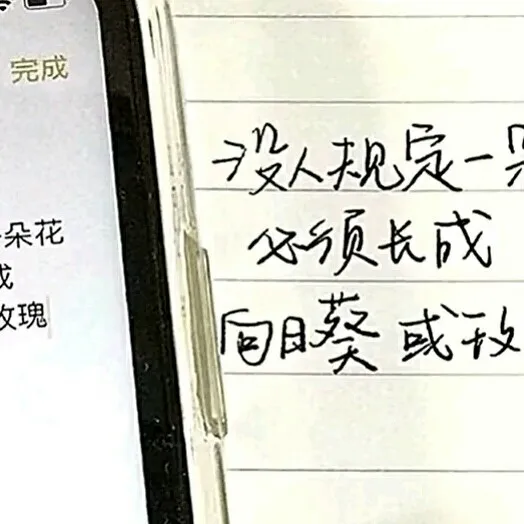 完成
朵花
成
玫瑰
没人规定一朵
必须长成
向日葵或玫